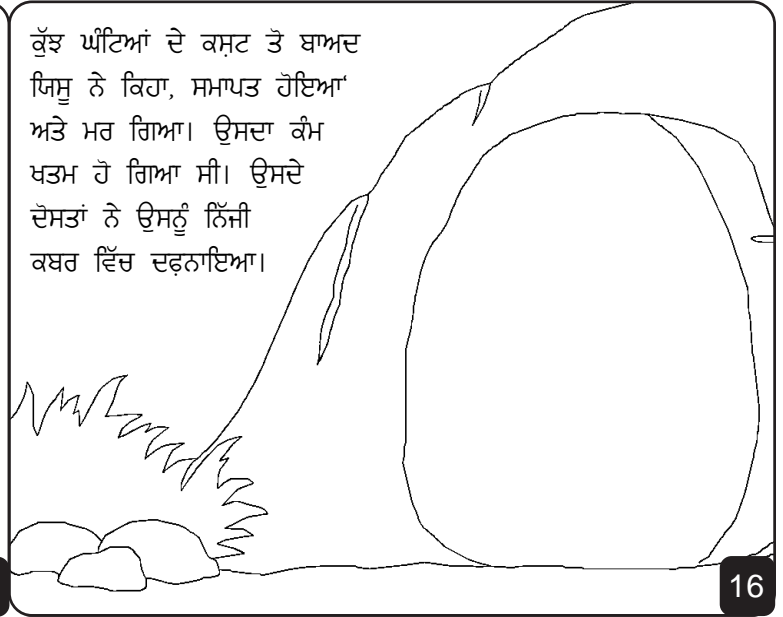 ਕੁੱਝ ਘੰਟਿਆਂ ਦੇ ਕਸ਼ਟ ਤੋ ਬਾਅਦ
ਯਿਸੂ ਨੇ ਕਿਹਾ, ਸਮਾਪਤ ਹੋਇਆ‘
ਅਤੇ ਮਰ ਗਿਆ। ਉਸਦਾ ਕੰਮ
ਖਤਮ ਹੋ ਗਿਆ ਸੀ। ਉਸਦੇ
ਦੋਸਤਾਂ ਨੇ ਉਸਨੂੰ ਨਿੱਜੀ
ਕਬਰ ਵਿੱਚ ਦਫ਼ਨਾਇਆ।
16